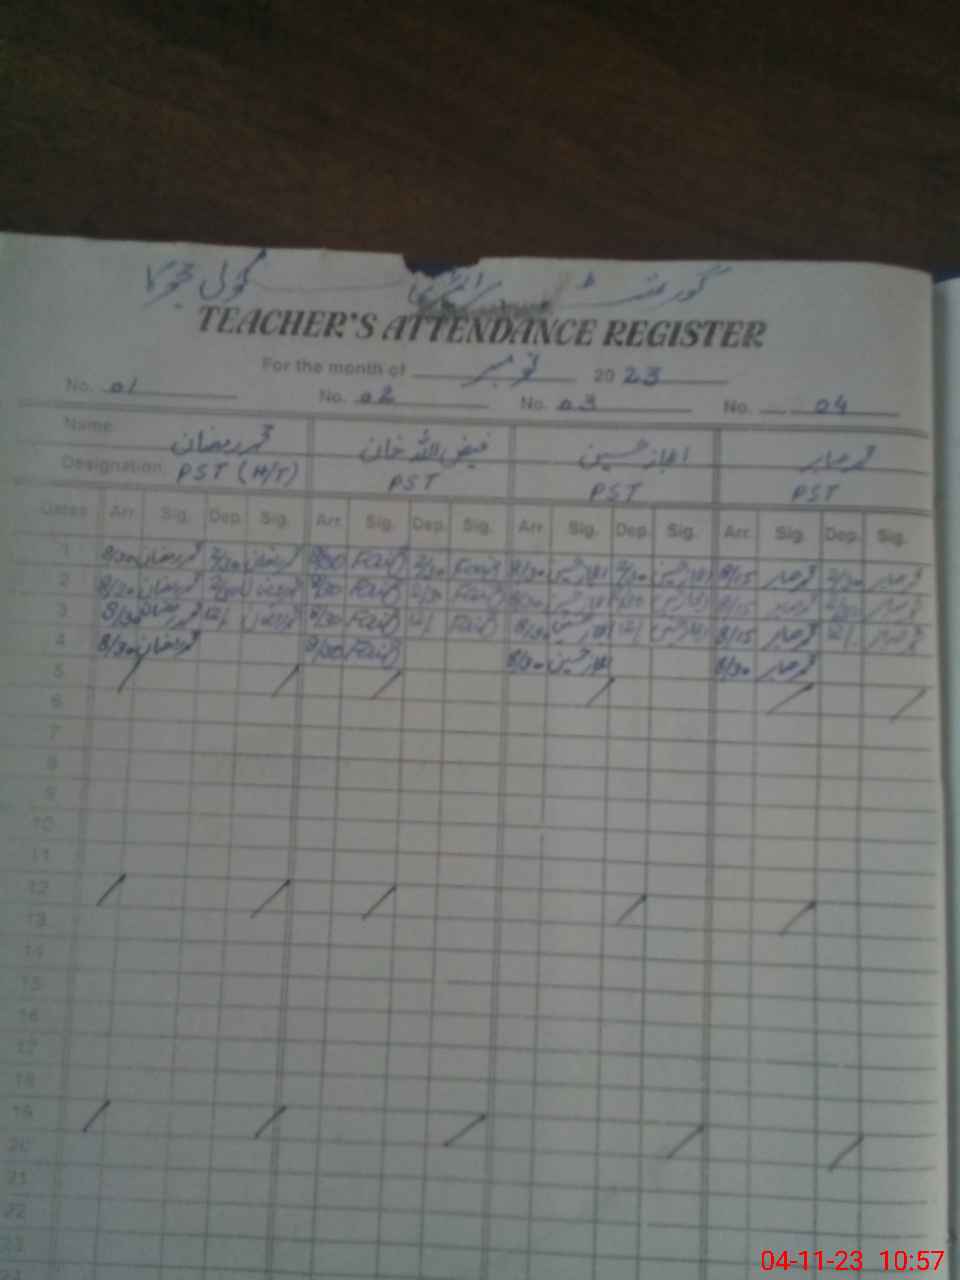 گورنمنٹ پرائمری
TEACHER'S ATTENDANCE REGISTER
For the month of نومبر 2023
No. 01 No. 02 No. 03 No. 04
Name: محمد رمضان فیض اللہ خان اعجاز حسین محمد صابر
Designation: PST (H/T) PST PST PST
Dates Arr. Sig. Dep. Sig. Arr. Sig. Dep. Sig. Arr. Sig. Dep. Sig. Arr. Sig. Dep. Sig.
1 8/30 محمد رمضان 2/30 محمد رمضان 8/30 Faiz 2/30 Faiz 8/30 اعجاز حسین 2/30 اعجاز حسین 8/15 محمد صابر 2/30 محمد صابر
2 8/30 محمد رمضان 2/30 محمد رمضان 8/30 Faiz 2/30 Faiz 8/30 اعجاز حسین اعجاز حسین 8/15 محمد صابر 2/30 محمد صابر
3 8/30 محمد رمضان 12/ محمد رمضان 8/30 Faiz 12/ Faiz 8/30 اعجاز حسین 12/ اعجاز حسین 8/15 محمد صابر 12/ محمد صابر
4 8/30 محمد رمضان 8/30 Faiz 8/30 اعجاز حسین 8/30 محمد صابر
5
6
7
8
9
10
11
12
13
14
15
16
17
18
19
20
21
22
23
24
04-11-23 10:57